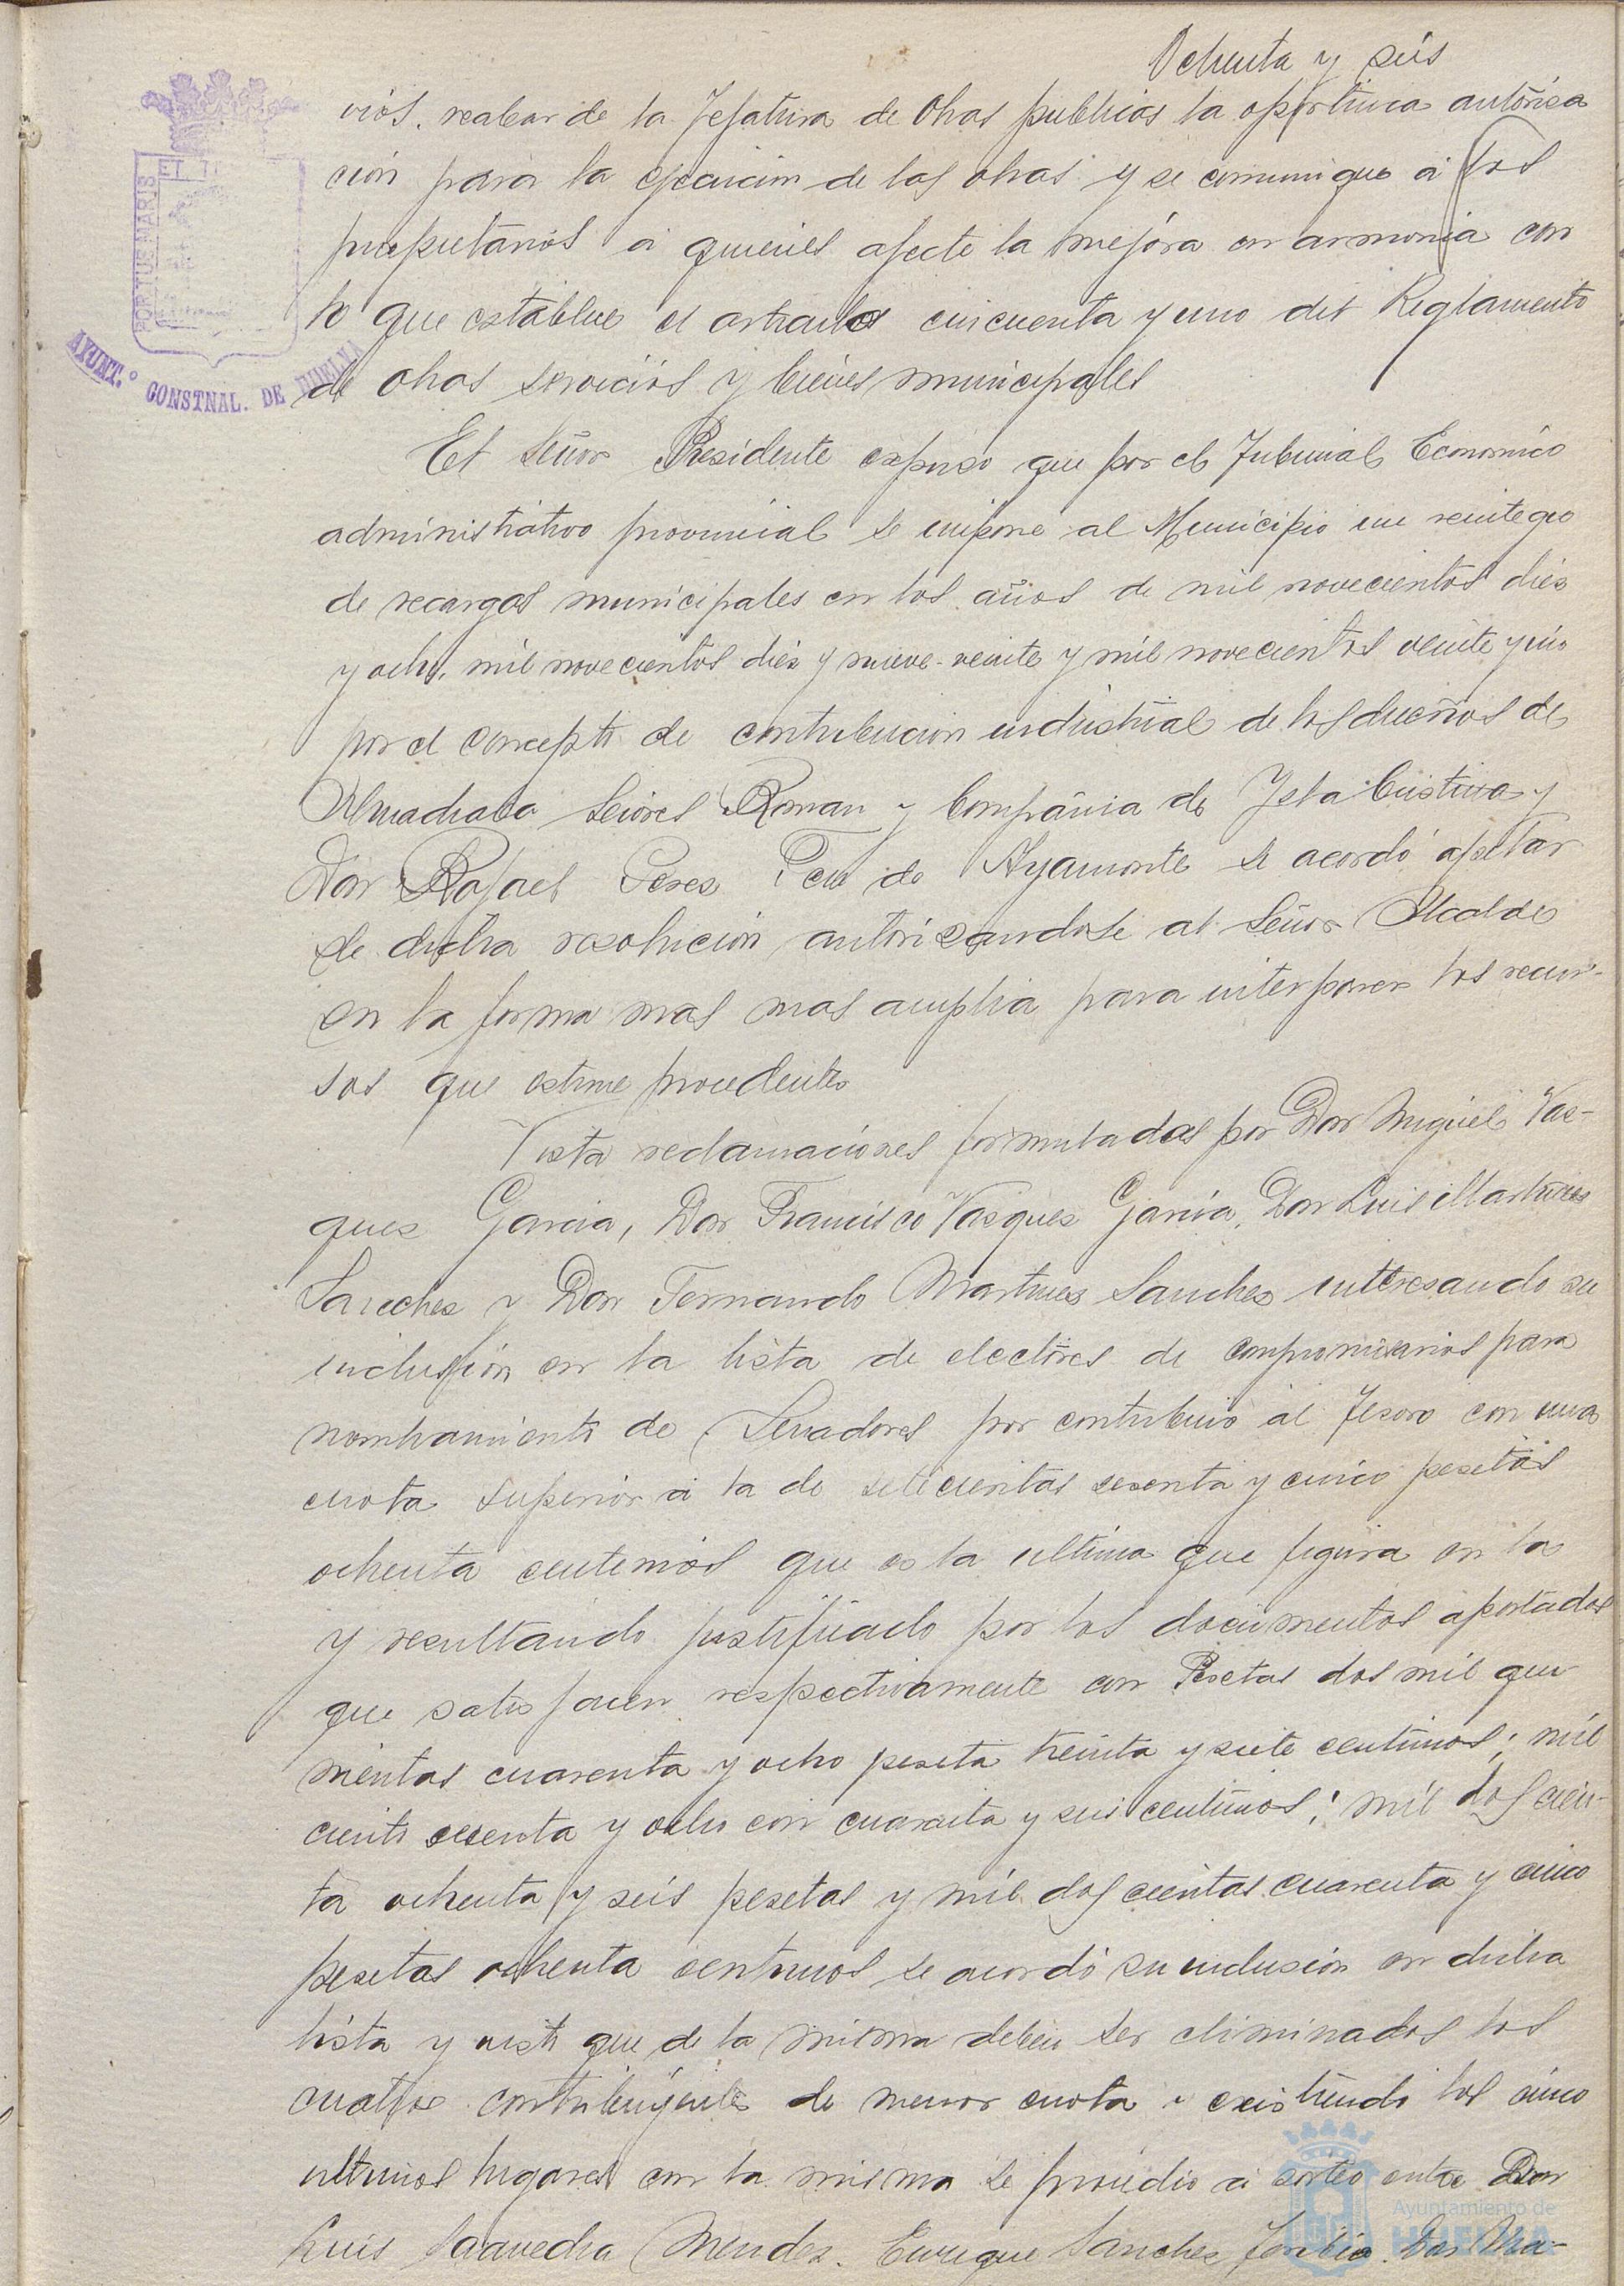 Ochenta y seis
vios. recabar de la Jefatura de Obras publicas la oportuna autoriza
cion para la ejecucion de las obras y se comunique a los
propietarios a quienes afecte la mejora en armonia con
lo que establece el articulo cincuenta y uno del Reglamento
de obras servicios y bienes municipales
El Señor Presidente expuso que por el Tribunal Economico
administrativo provincial se impone al Municipio un reintegro
de recargos municipales en los años de mil novecientos diez
y ocho, mil novecientos diez y nueve-veinte y mil novecientos veinte y uno
por el concepto de contribucion industrial de los dueños de
Almadraba Señores Roman y Compañia de Isla Cristina y
Don Rafael Perez Feu de Ayamonte se acordó apelar
de dicha resolucion autorizandose al Señor Alcalde
en la forma mas mas amplia para interponer los recur-
sos que estime procedentes
Vista reclamaciones formuladas por Don Miguel Vaz-
quez Garcia, Don Francisco Vazquez Garcia, Don Luis Martinez
Sanchez y Don Fernando Martinez Sanchez interesando su
inclusion en la lista de electores de compromisarios para
nombramiento de Senadores por contribuir al Tesoro con una
cuota superior a la de setecientas sesenta y cinco pesetas
ochenta centimos que es la ultima que figura en la
y resultando justificado por los documentos aportados
que satisfacen respectivamente con Pesetas dos mil qui
nientas cuarenta y ocho peseta treinta y siete centimos; mil
ciento sesenta y ocho con cuarenta y seis centimos; mil doscien-
ta ochenta y seis pesetas y mil doscientas cuarenta y cinco
pesetas ochenta centimos se acordó su inclusion en dicha
lista y visto que de la misma deben ser eliminados los
cuatro contribuyentes de menor cuota y existiendo los cinco
ultimos lugares con la misma se procedio a sorteo entre Don
Luis Saavedra Mendez. Enrique Sanchez Toribio. Don Ma-
POR TUE MARIS
ET T
AYUNT.º CONSTNAL. DE HUELVA
Ayuntamiento de
HUELVA